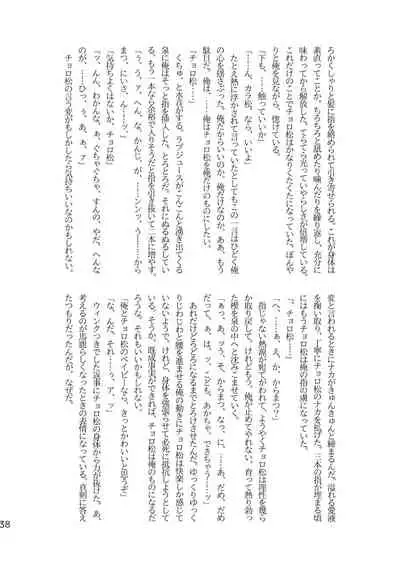 ろかくしゃりと髪に指を絡められて引き寄せられる。これが身体は
素直ってことか。ちろちろと舐めたり噛んだりを繰り返し、充分に
味わってから解放した。てらてら光っていやらしさが倍増している。
これだけのことでチョロ松はかなりくたくたになっていた。ぼんや
りと俺を見ながら、惚けている。
「下も、……触っていいか」
「……ん、カラ松、なら、いいよ」
たとえ熱に浮かされて言っていたとしてもこの一言はひどく俺
の心を揺さぶった。俺だからいいのか、俺だけなのか。ああ、もう
駄目だ。俺は、……俺はチョロ松を俺だけのものにしたい。
「チョロ松……」
くちゅ、と水音がする。ラブジュースがこんこんと湧き出てくる
泉に俺はそっと指を挿入した。とろとろだ。それにぬるぬるしてい
る。もう一本なら余裕で入りそうだと指を引き抜いて二本に増やす。
「っ、うぅ、ア、へん、な、かんじ、が、……ンンッ、う、……から
まつ、にいさ、ん……ッ」
「気持ちよくはないか、チョロ松」
「ッ、んん、わかんな、ぁ、ぐちゃぐちゃ、すんの、やだ、へんな
のが、……ひっ、ぅ、あ、ぁ、ァ」
チョロ松の言う変がもしかしたら気持ちいいなのかもしれない。
変と言われるときにナカがきゅんきゅんと締まるんだ。溢れる愛液
を掬い取り、丁寧にチョロ松のナカを拡げた。三本の指が埋まる頃
にはもうチョロ松は俺の指の虜になっていた。
「っ、チョロ松……」
「へ、……ぁ、え、か、からまつ？」
指じゃない熱源が宛てがわれて、ようやくチョロ松は理性を幾ら
か取り戻して。けれども、もう俺が止めてやれない。育って熱り勃っ
た楔を泉の中へと沈みこませていく。
「ぁっ、あ、ッう、そ、からまつ、なっ、に、……あ、だめ、だめ
だって、ぁ、は、っ、こども、あかちゃ、できちゃう……ッ」
あれだけどろどろになるまでとろけさせたんだ。ゆっくりゆっく
りじわじわと腰を進ませる俺の動きにチョロ松は快楽しか感じて
いないようで、けれど、身体を強張らせて必死に抵抗しようとして
いる。そうか、既成事実ができれば、チョロ松は俺のものになるだ
ろうな。それもいいかもしれない。
「俺とチョロ松のベイビーなら、きっとかわいいと思うぞ」
「な、んだ、それ……ぅ、ア、ッ」
ウィンクつきでした返事にチョロ松の身体から力が抜けた。あ、
考えるのが馬鹿らしくなったときの表情になっている。真剣に答え
たつもりだったんだが。なぜだ。
38